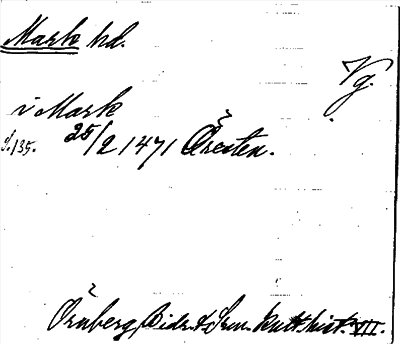 Mark hd.
Vg.
i Mark
s. 135. 25/2 1471 Öresten.
Örnberg, Bidr. t. Sv. kult hist. VII.